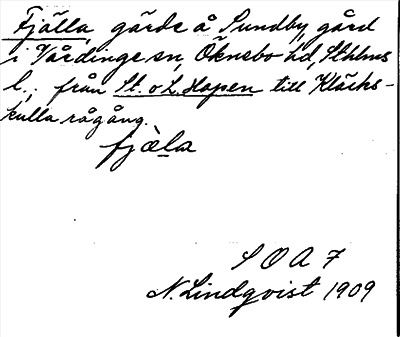 Fjälla gärde å Sundby gård
i Vårdinge sn Öknebo hd, Sthlms
l.; från St. o L. Hapen till Kläcks-
kulla rågång.
fjæ̀la
S O A 7
N. Lindqvist 1909